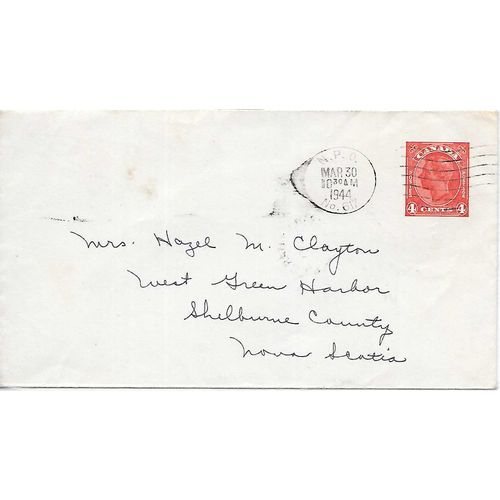 N.P.O.
MAR 30
10 30 AM
1944
CANADA
4 CENTS 4
Mrs. Hazel M. Clayton
West Green Harbor
Shelburne County
Nova Scotia